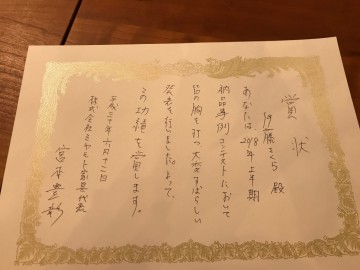 賞状
伊藤さくら 殿
あなたは2018年上半期
納品事例コンテストにおいて
皆の胸を打つ大変すばらしい
発表を行いましたよって、
この功績を賞します。
平成三十年六月十二日
株式会社 代表
宮本豊彰